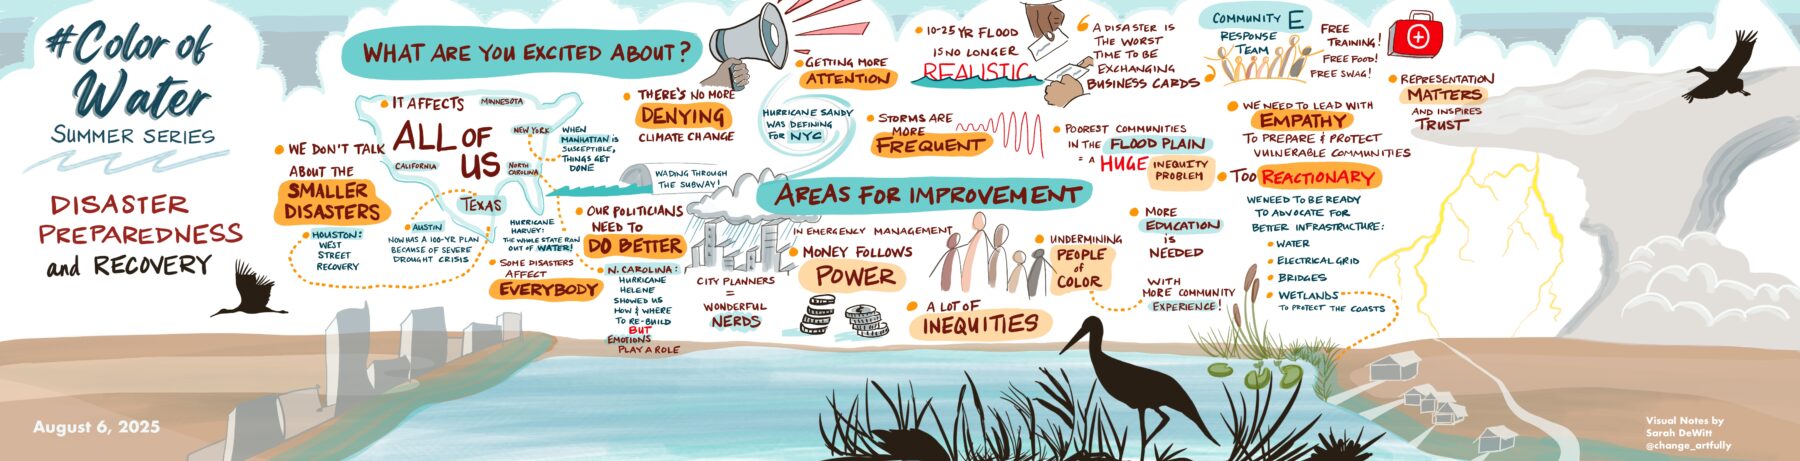 #Color of
Water
SUMMER SERIES
DISASTER
PREPAREDNESS
and RECOVERY
August 6, 2025
WHAT ARE YOU EXCITED ABOUT?
IT AFFECTS
ALL OF
US
MINNESOTA
NEW YORK
CALIFORNIA
NORTH
CAROLINA
TEXAS
WHEN
MANHATTAN IS
SUSCEPTIBLE,
THINGS GET
DONE
WE DON'T TALK
ABOUT THE
SMALLER
DISASTERS
HOUSTON:
WEST
STREET
RECOVERY
AUSTIN
NOW HAS A 100-YR PLAN
BECAUSE OF SEVERE
DROUGHT CRISIS
HURRICANE
HARVEY:
THE WHOLE STATE RAN
OUT OF WATER!
SOME DISASTERS
AFFECT
EVERYBODY
THERE'S NO MORE
DENYING
CLIMATE CHANGE
GETTING MORE
ATTENTION
HURRICANE SANDY
WAS DEFINING
FOR NYC
WADING THROUGH
THE SUBWAY!
10-25 YR FLOOD
IS NO LONGER
REALISTIC
STORMS ARE
MORE
FREQUENT
A DISASTER IS
THE WORST
TIME TO BE
EXCHANGING
BUSINESS CARDS
COMMUNITY E
RESPONSE
TEAM
FREE
TRAINING!
FREE FOOD!
FREE SWAG!
REPRESENTATION
MATTERS
AND INSPIRES
TRUST
AREAS FOR IMPROVEMENT
OUR POLITICIANS
NEED TO
DO BETTER
N. CAROLINA:
HURRICANE
HELENE
SHOWED US
HOW & WHERE
TO RE-BUILD
BUT
EMOTIONS
PLAY A ROLE
CITY PLANNERS
=
WONDERFUL
NERDS
IN EMERGENCY MANAGEMENT
MONEY FOLLOWS
POWER
A LOT OF
INEQUITIES
UNDERMINING
PEOPLE
of
COLOR
POOREST COMMUNITIES
IN THE FLOOD PLAIN
= A HUGE INEQUITY
PROBLEM
MORE
EDUCATION
IS
NEEDED
WITH
MORE COMMUNITY
EXPERIENCE!
WE NEED TO LEAD WITH
EMPATHY
TO PREPARE & PROTECT
VULNERABLE COMMUNITIES
TOO REACTIONARY
WE NEED TO BE READY
TO ADVOCATE FOR
BETTER INFRASTRUCTURE:
WATER
ELECTRICAL GRID
BRIDGES
WETLANDS
TO PROTECT THE COASTS
Visual Notes by
Sarah DeWitt
@change_artfully